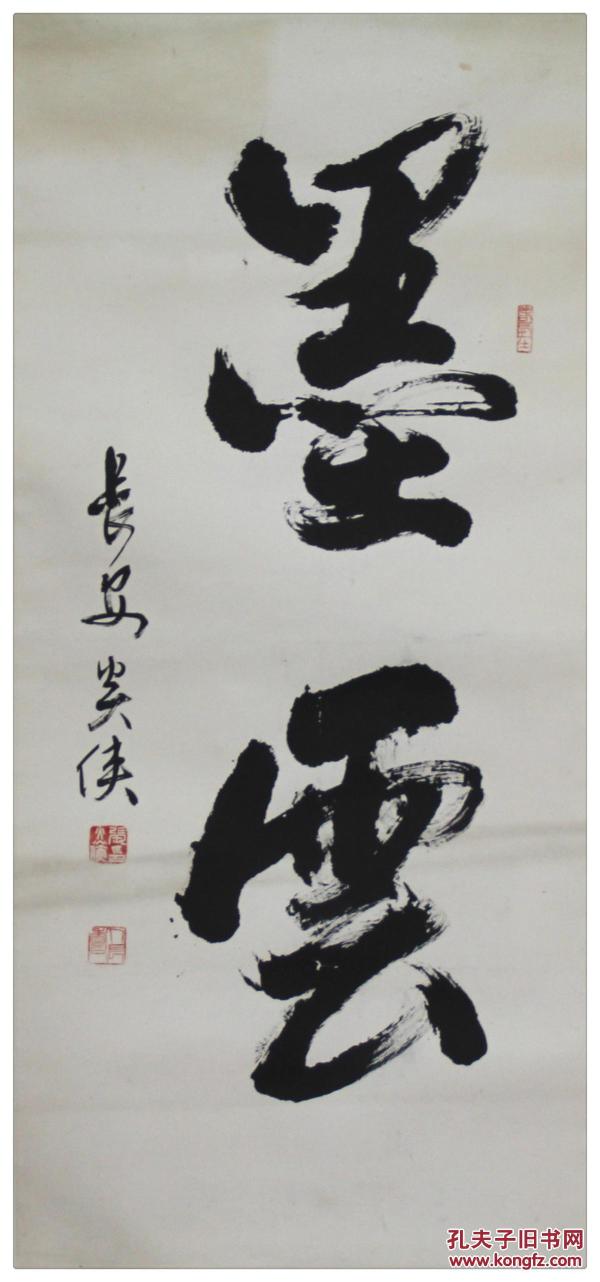 墨雲
長安炎俠
孔夫子旧书网
www.kongfz.com